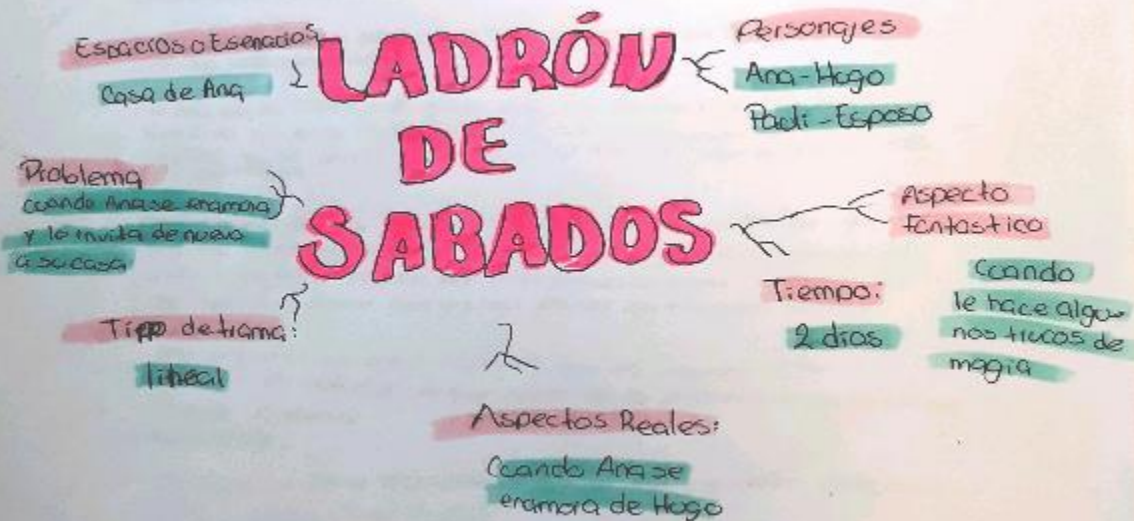 Espacios o Esenacios
Casa de Ana
LADRÓN
DE
SABADOS
Personajes
Ana-Hogo
Padi-Esposo
Problema
Cuando Ana se enamora
y lo invita de nuevo
a su casa
Aspecto
fantastico
Cuando
le hace algu-
nos trucos de
magia
Tiempo:
2 dias
Tipo de trama:
lineal
Aspectos Reales:
Cuando Ana se
enamora de Hugo